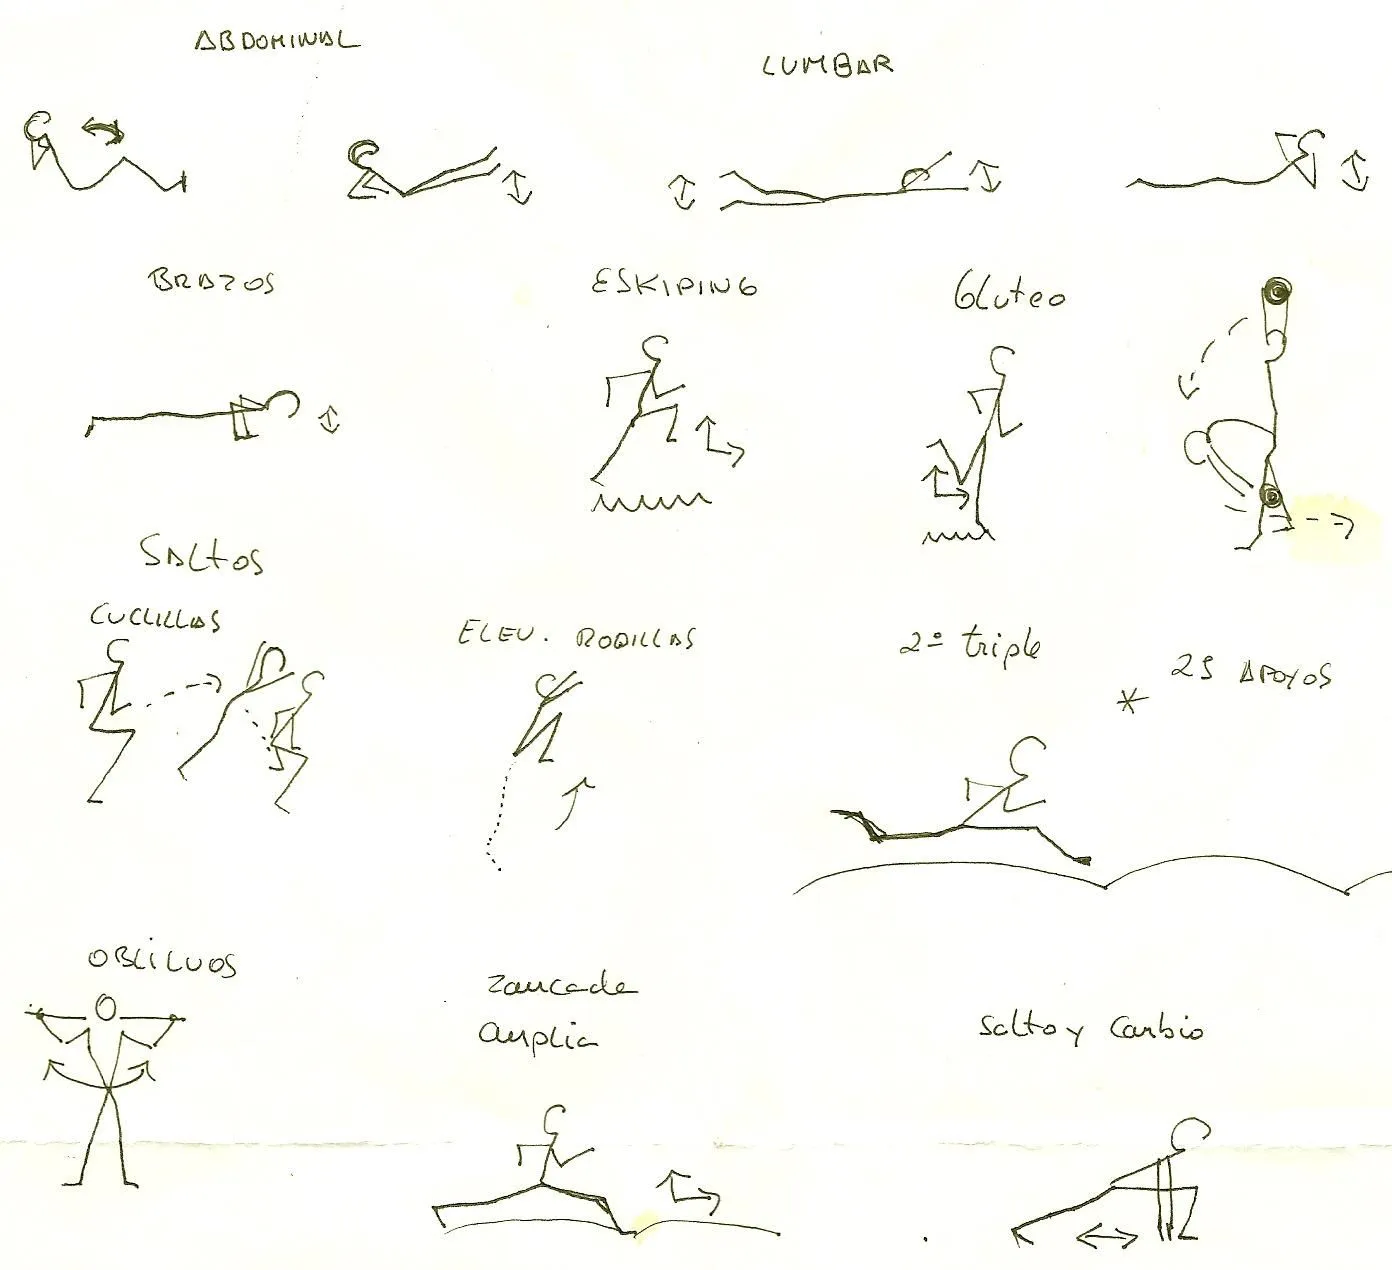 ABDOMINAL
LUMBAR
BRAZOS
ESKIPING
Gluteo
SALtOS
CUCLILLAS
ELEV. RODILLAS
2º triple
* 25 APOYOS
OBLiCUOS
Zancada
amplia
Salto y Cambio